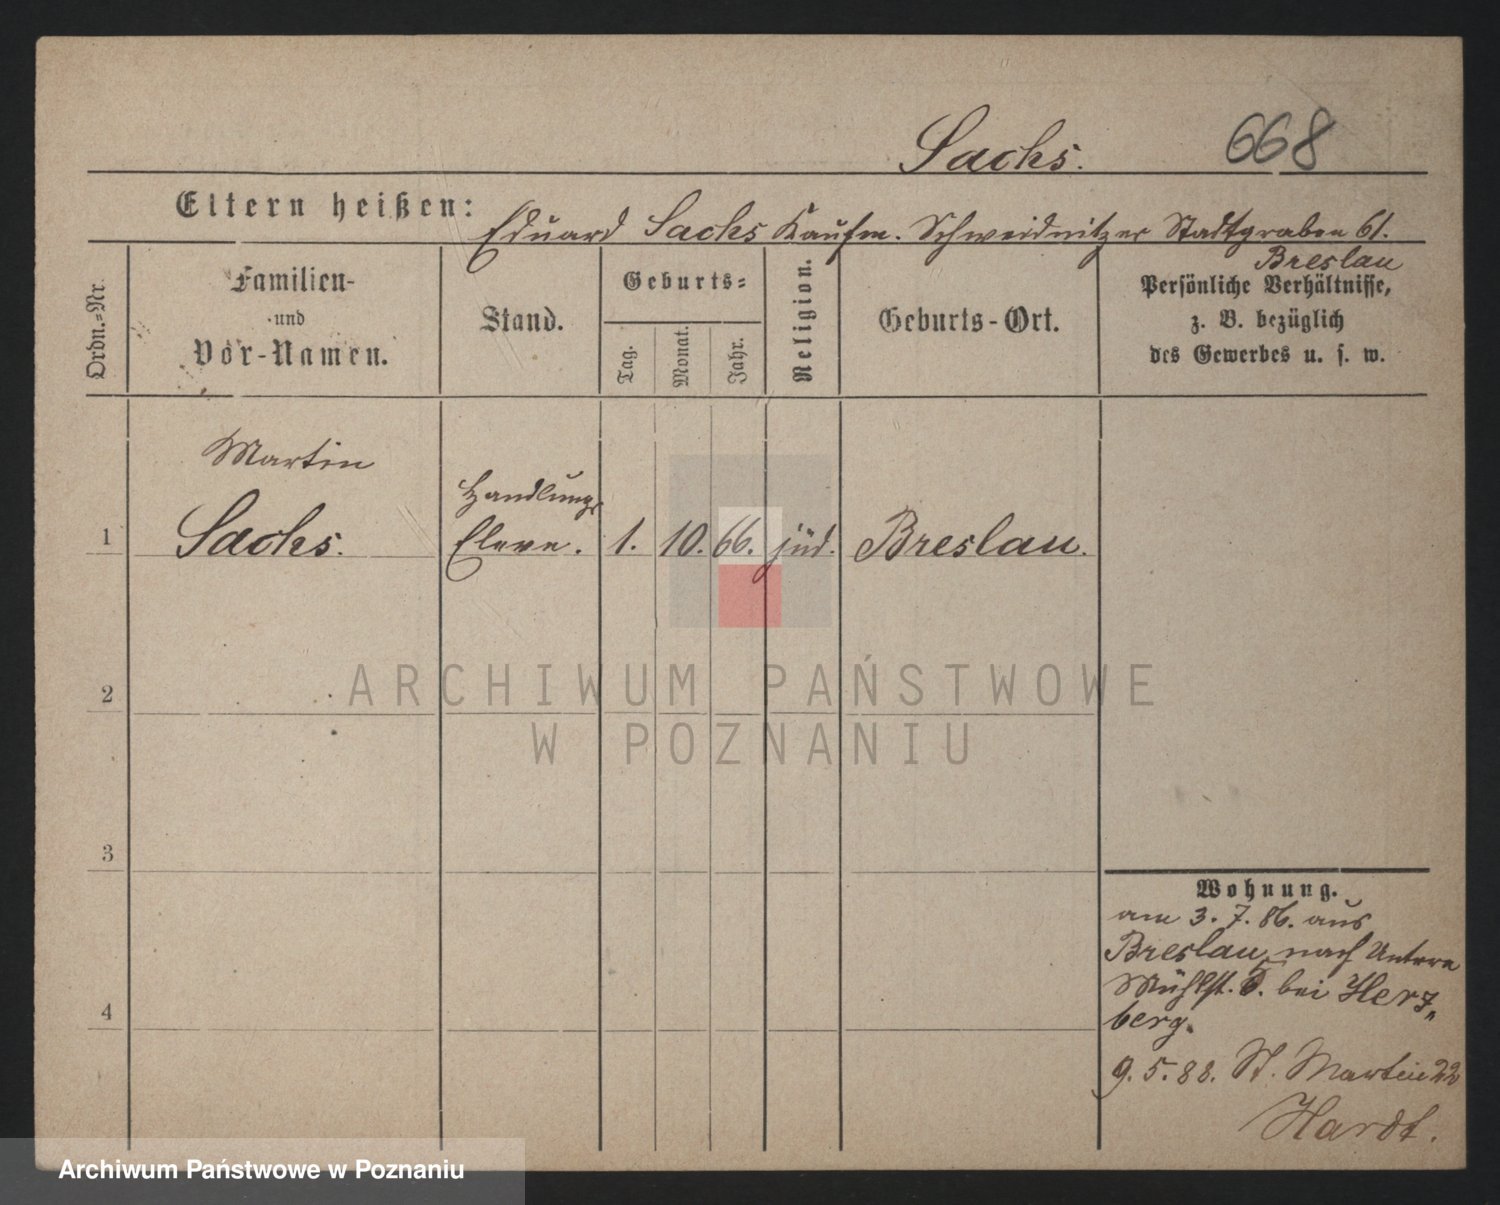 Sachs. 668
Eltern heißen: Eduard Sachs Kaufm. Schweidnitzer Stadtgraben 61.
Breslau
Ordn.-Nr.
Familien-
und
Vor-Namen.
Stand.
Geburts-
Tag.
Monat.
Jahr.
Religion.
Geburts-Ort.
Persönliche Verhältnisse,
z. B. bezüglich
des Gewerbes u. s. w.
Martin
Handlungs
1 Sachs. Eleve. 1. 10. 66. jüd. Breslau.
2
3
4
Wohnung.
am 3. 7. 86. aus
Breslau, nach Untere
Mühlst. 5. bei Herz„
berg.
9. 5. 88. St. Martin 22
Hardt.
ARCHIWUM PAŃSTWOWE
W POZNANIU
Archiwum Państwowe w Poznaniu